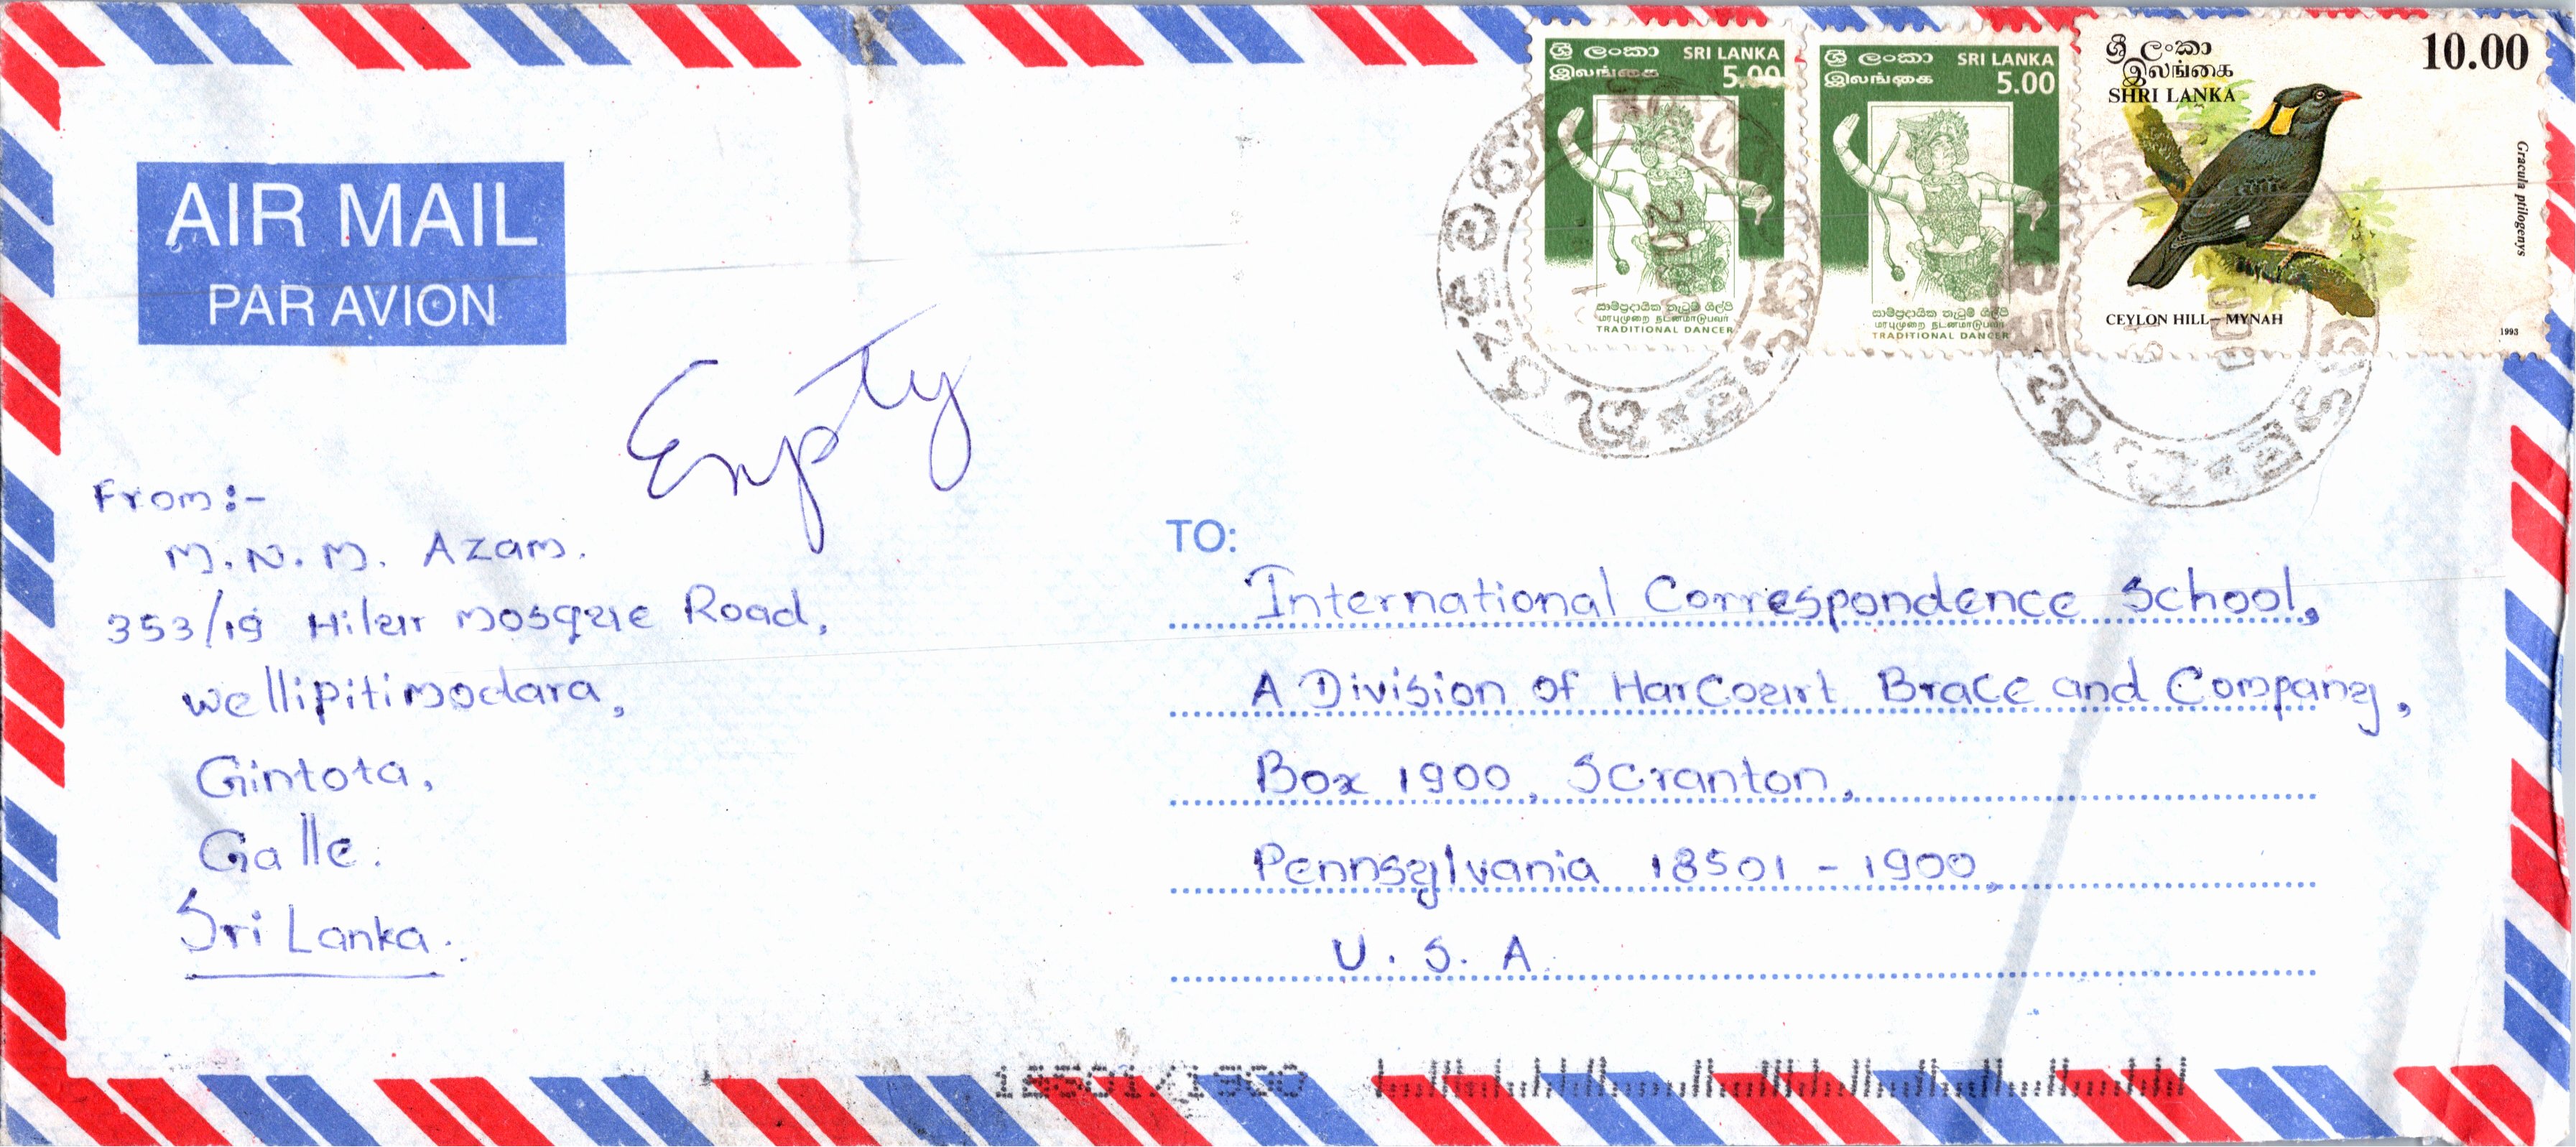 AIR MAIL
PAR AVION
Empty
From:-
M. N. M. Azam.
353/19 Hilur Mosque Road,
Wellipitimodara,
Gintota,
Galle.
Sri Lanka.
ශ්‍රී ලංකා SRI LANKA
இலங்கை 5.00
සාම්ප්‍රදායික නැටුම් ශිල්පී
மரபுமுறை நடனமாடுபவர்
TRADITIONAL DANCER
ශ්‍රී ලංකා SRI LANKA
இலங்கை 5.00
සාම්ප්‍රදායික නැටුම් ශිල්පී
மரபுமுறை நடனமாடுபவர்
TRADITIONAL DANCER
ශ්‍රී ලංකා
இலங்கை
SHRI LANKA
10.00
Gracula ptilogenys
CEYLON HILL-MYNAH
1993
TO:
International Correspondence School,
A Division of HarCourt Brace and Company,
Box 1900, Scranton,
Pennsylvania 18501 - 1900,
U. S. A.
18501/1900